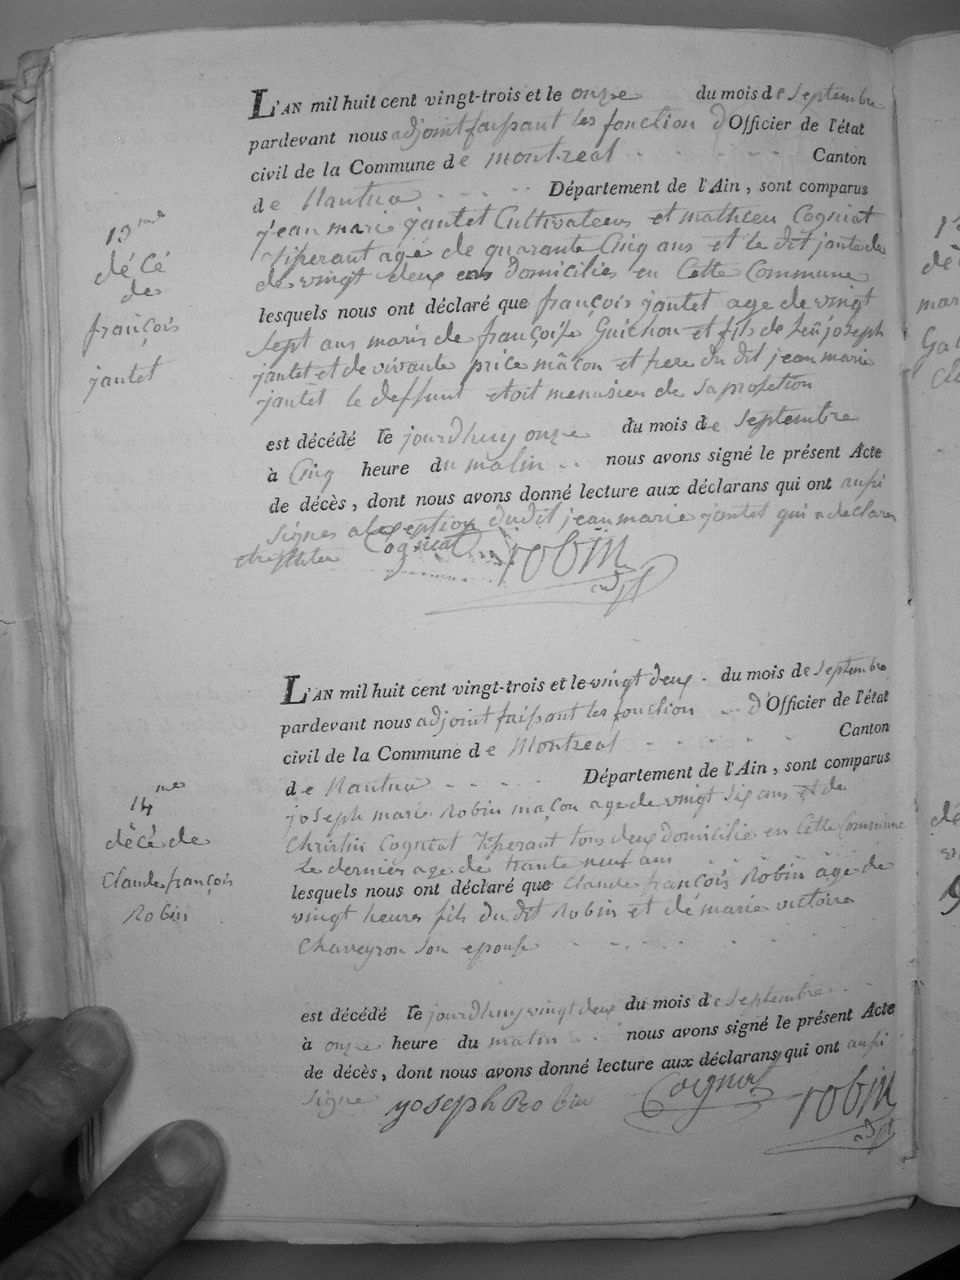 L'AN mil huit cent vingt-trois et le onze du mois de septembre
pardevant nous adjoint faisant les fonction d'Officier de l'état
civil de la Commune de Montreal Canton
de Nantua Département de l'Ain, sont comparus
13me
décé
de
françois
jantet
jean marie jantet Cultivateur et mathieu Cogniat
agé de quarante Cinq ans et le dit jantet de
de vingt deux ans domiciliés en Cette Commune
lesquels nous ont déclaré que françois jantet age de vingt
sept ans maris de françoise Guichon et fils de feu joseph
jantet et de vivante price mâcon et frere du dit jean marie
jantet le deffunt etoit menusier de sa profetion
est décédé le jourdhuy onze du mois de septembre
à Cinq heure du matin nous avons signé le présent Acte
de décès, dont nous avons donné lecture aux déclarans qui ont
signes a lexseption dudit jean marie jantet qui a declarer
Cogniat robin
adjt
L'AN mil huit cent vingt-trois et le vingt deux du mois de septembre
pardevant nous adjoint faisant les fonction d'Officier de l'état
civil de la Commune de Montreal Canton
de Nantua Département de l'Ain, sont comparus
14me
décé de
Claude françois
Robin
joseph marie Robin maçon age de vingt six ans et de
Christin Cogniat tous deux domicilié en Cette Commune
Le dernier age de trante neuf ans
lesquels nous ont déclaré que Claude françois Robin age de
vingt heures fils du dit Robin et de marie victoire
Chaveyron son epouse
est décédé le jourdhuy vingt deux du mois de septembre
à onze heure du matin nous avons signé le présent Acte
de décès, dont nous avons donné lecture aux déclarans qui ont
signe joseph Robin Cogniat robin
adjt